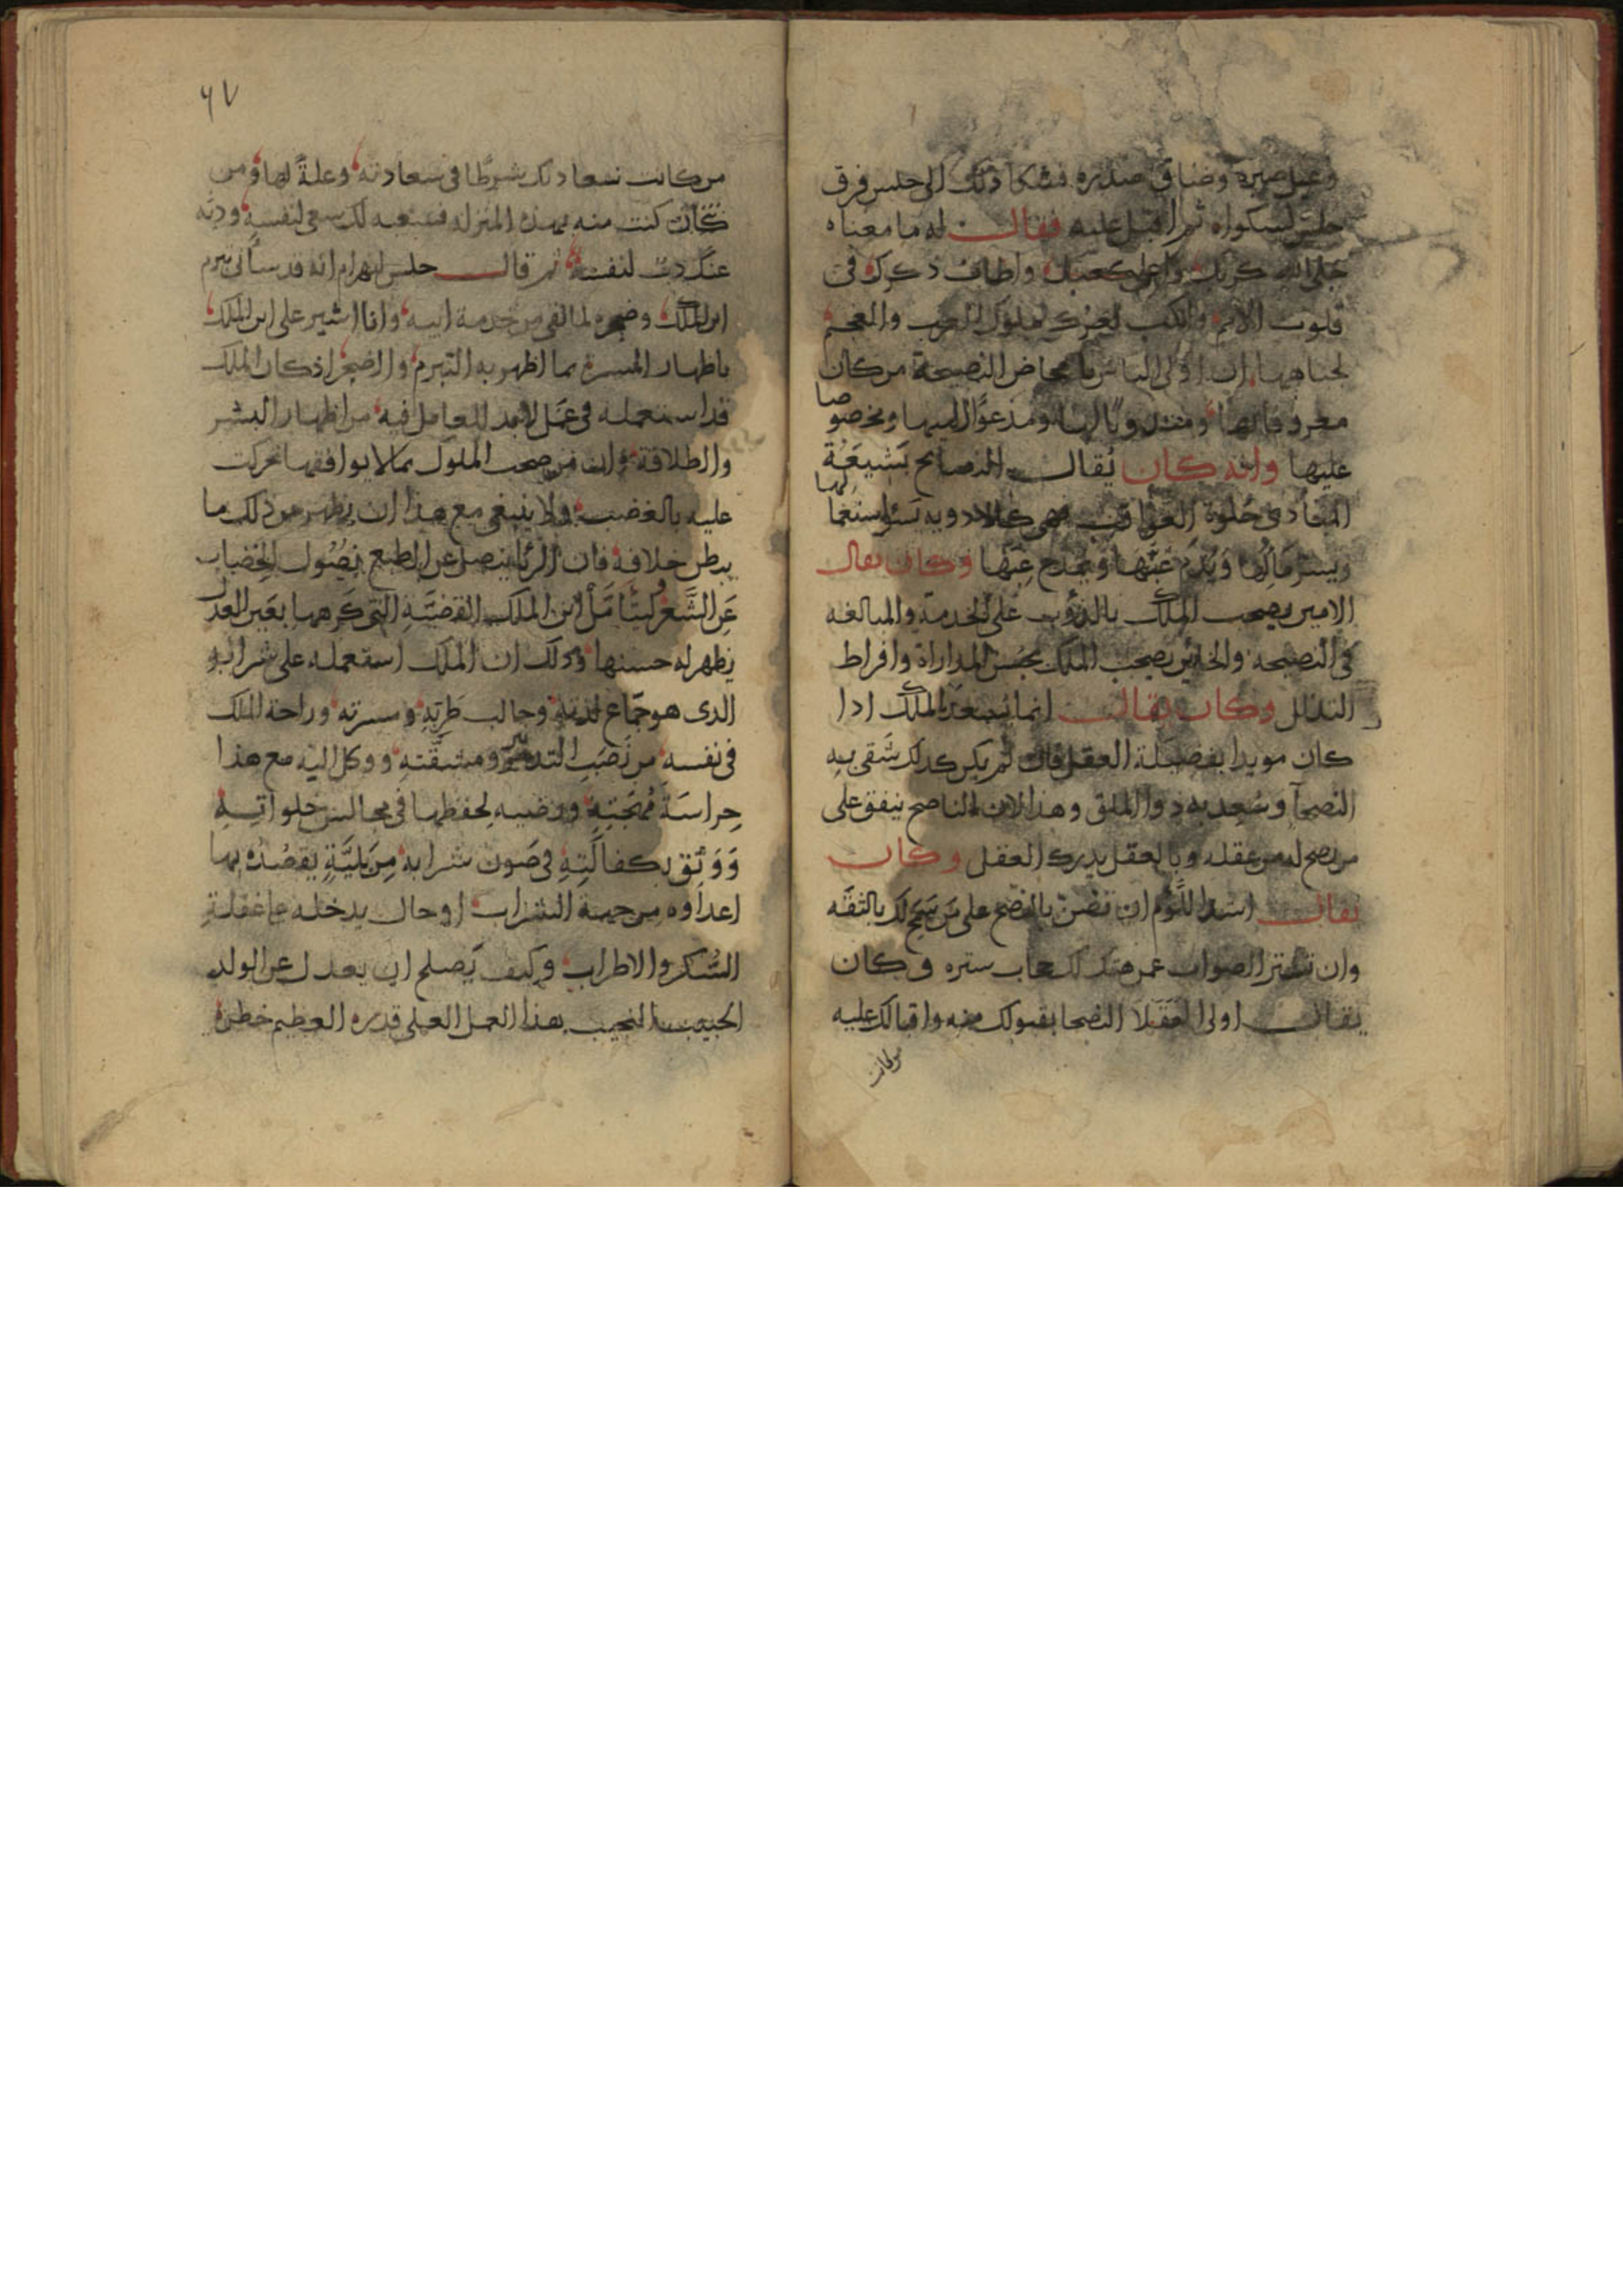 وعيل صبره وضاق صدره فشكا ذلك الى جليس فرق
جليس لشكواه ثم اقبل عليه فقال له ما معناه
جلا الله كربك واعلى كعبك واطاب ذكرك فى
قلوب الامم واكب لعزك ملوك العرب والعجم
لجباهها ان اولى الناس بامحاض النصيحة من كان
معروفا بها ومندوبا لها ومدعوا اليها ومخصوصا
عليها وانه كان يُقال النصائح بَشِيعَةُ
المبادى حُلوة العواقب فهى كالادوية يسؤ استعمالها
ويسر مآلها وَيُذم غبّها ويُمدح غِبّها وكان يقال
الامين يصحب الملك بالدؤوب على الخدمة والمبالغه
فى النصيحه والخائن يصحب الملك بحسن المداراة وافراط
التذلل وكان يقال انما يسعد الملك اذا
كان مويدا بفضيلة العقل فان لم يكن كذلك شقى به
النصحآ وسُعِد به ذوو الملق وهذا لان الناصح ينفق على
من نصح له من عقله وبالعقل يدرك العقل وكان
يقال اشد اللوم ان تضن بالنصح على من سمح لك بالثقه
وان تستر الصواب عمن هتك لك حجاب ستره وكان
يقال اولى العقلا النصحا بقبولك منه واقبالك عليه
من كانت
٦٧
من كانت سعادتك شرطًا فى سعادته وعلةً لها ومن
كنت منه بهذه المنزله فسعيه لك سعى لنفسه وذبه
عنك ذب لنفسه ثم قال جليس لبهرام انه قد ساتى تبرم
ابن الملك وضجره لما لقى من خدمة ابيه وانا اشير على ابن الملك
باظهار المسرة بما اظهر به التبرم والضجر اذ كان الملك
قد استعمله فى عمل لابد للعامل فيه من اظهار البشر
والطلاقة وان من صحب الملوك بما لا يوافقها تحركت
عليه بالغضب ولا ينبغى مع هذا ان يظهر من ذلك ما
يبطن خلافه فان الريا ينصل عن الطبع نُصُول الخضاب
عَن الشَّعر وليتأمَّل ابن الملك القضيَّةِ التى كَرِهها بعَين العدل
يظهر له حسنها وذلك ان الملك استعمله على شرابه
الذى هو جمّاع لذته وجالب طَرَبِه ومسرته وراحة للملك
فى نفسه من نَصَبِ التدبير ومشقَّته ووكل اليه مع هذا
حِراسَةَ مُهجَتِهِ ورضيه لحِفظها فى مجالس خلواتِهِ
وَوَثِق بكفالَتِهِ فى صَون شرابه مِن بَليَّةٍ يقصُدُه بها
اعداوه من جهة الشراب او حال يدخله بها غفلة
السُّكر والاطراب وكيف يَصلح ان يعدل عن الولد
الحبيب النجيب بهذا العمل العلى قدره العظيم خطره